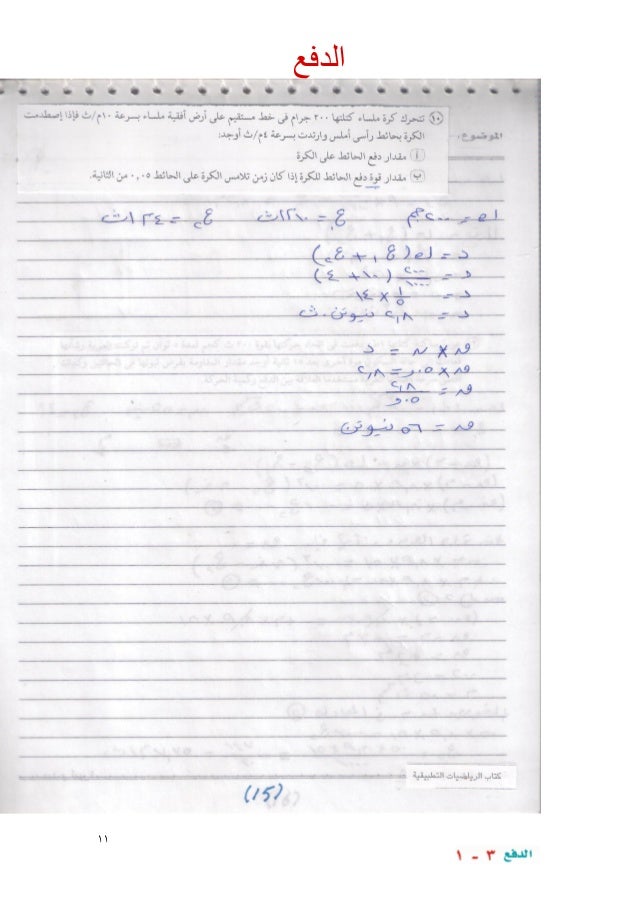 الدفع
الموضوع:
١٠ تتحرك كرة ملساء كتلتها ٢٠٠ جرام فى خط مستقيم على أرض أفقية ملساء بسرعة ١٠م/ث فإذا إصطدمت
الكرة بحائط رأسى أملس وارتدت بسرعة ٤م/ث أوجد:
أ مقدار دفع الحائط على الكرة
ب مقدار قوة دفع الحائط للكرة إذا كان زمن تلامس الكرة على الحائط ٠,٠٥ من الثانية.
ك = ٢٠٠ جم ع١ = ١٠ م/ث ع٢ = ٤ م/ث
د = ك (ع١ + ع٢)
د = ٢٠٠/١٠٠٠ (١٠ + ٤)
د = ١/٥ × ١٤
د = ٢,٨ نيوتن.ث
ق × ن = د
ق × ٠,٠٥ = ٢,٨
ق = ٢,٨/٠,٠٥
ق = ٥٦ نيوتن
كتاب الرياضيات التطبيقية
(15)
١١
الدفع ٣ - ١